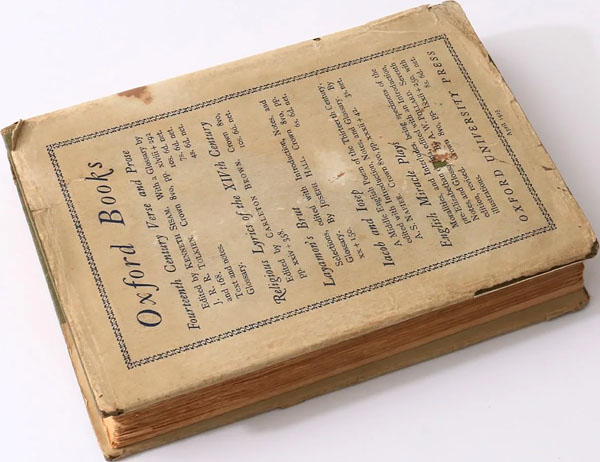 Oxford Books
Fourteenth Century Verse and Prose
Edited by KENNETH SISAM. With a Glossary by
J. R. R. TOLKIEN. Crown 8vo, pp. xlviii + 292
and 168. 7s. 6d. net.
Text and notes 5s. 6d. net.
Glossary, 4s. 6d. net.
Religious Lyrics of the XIVth Century
Edited by CARLETON BROWN. Crown 8vo,
pp. xxiv + 358. 10s. 6d. net.
Layamon's Brut
Selections, edited with Introduction, Notes, and
Glossary, by JOSEPH HALL. Crown 8vo, pp.
xx + 150. 6s. 6d. net.
Iacob and Iosep
A Middle English Poem of the Thirteenth Century,
edited with Introduction, Notes, and Glossary by
A. S. NAPIER. Crown 8vo, pp. xxxii + 42. 3s. net.
English Miracle Plays
Moralities, and Interludes, edited with an Introduction,
Notes, and Glossary, by A. W. POLLARD. Seventh
edition, revised. Crown 8vo, pp. lxxii + 250, with
illustrations. 8s. 6d. net.
OXFORD UNIVERSITY PRESS
April